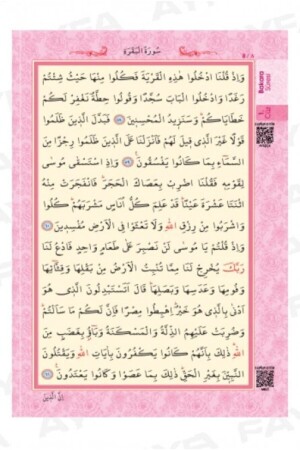 سُورَةُ الْبَقَرَةِ
٨ / 8
وَاِذْ قُلْنَا ادْخُلُوا هٰذِهِ الْقَرْيَةَ فَكُلُوا مِنْهَا حَيْثُ شِئْتُمْ
رَغَدًا وَادْخُلُوا الْبَابَ سُجَّدًا وَقُولُوا حِطَّةٌ نَغْفِرْ لَكُمْ
خَطَايَاكُمْ وَسَنَزِيدُ الْمُحْسِنِينَ ﴿٥٨﴾ فَبَدَّلَ الَّذِينَ ظَلَمُوا
قَوْلًا غَيْرَ الَّذِي قِيلَ لَهُمْ فَاَنْزَلْنَا عَلَى الَّذِينَ ظَلَمُوا رِجْزًا مِنَ
السَّمَاءِ بِمَا كَانُوا يَفْسُقُونَ ﴿٥٩﴾ وَاِذِ اسْتَسْقٰى مُوسٰى
لِقَوْمِهِ فَقُلْنَا اضْرِبْ بِعَصَاكَ الْحَجَرَ فَانْفَجَرَتْ مِنْهُ
اثْنَتَا عَشْرَةَ عَيْنًا قَدْ عَلِمَ كُلُّ اُنَاسٍ مَشْرَبَهُمْ كُلُوا
وَاشْرَبُوا مِنْ رِزْقِ اللّٰهِ وَلَا تَعْثَوْا فِي الْاَرْضِ مُفْسِدِينَ ﴿٦٠﴾
وَاِذْ قُلْتُمْ يَا مُوسٰى لَنْ نَصْبِرَ عَلٰى طَعَامٍ وَاحِدٍ فَادْعُ لَنَا
رَبَّكَ يُخْرِجْ لَنَا مِمَّا تُنْبِتُ الْاَرْضُ مِنْ بَقْلِهَا وَقِثَّائِهَا
وَفُومِهَا وَعَدَسِهَا وَبَصَلِهَا قَالَ اَتَسْتَبْدِلُونَ الَّذِي هُوَ
اَدْنٰى بِالَّذِي هُوَ خَيْرٌ اِهْبِطُوا مِصْرًا فَاِنَّ لَكُمْ مَا سَاَلْتُمْ
وَضُرِبَتْ عَلَيْهِمُ الذِّلَّةُ وَالْمَسْكَنَةُ وَبَاؤُ بِغَضَبٍ مِنَ
اللّٰهِ ذٰلِكَ بِاَنَّهُمْ كَانُوا يَكْفُرُونَ بِاٰيَاتِ اللّٰهِ وَيَقْتُلُونَ
النَّبِيِّنَ بِغَيْرِ الْحَقِّ ذٰلِكَ بِمَا عَصَوْا وَكَانُوا يَعْتَدُونَ ﴿٦١﴾
اِنَّ الَّذِينَ
Bakara
Suresi
1
Cüz